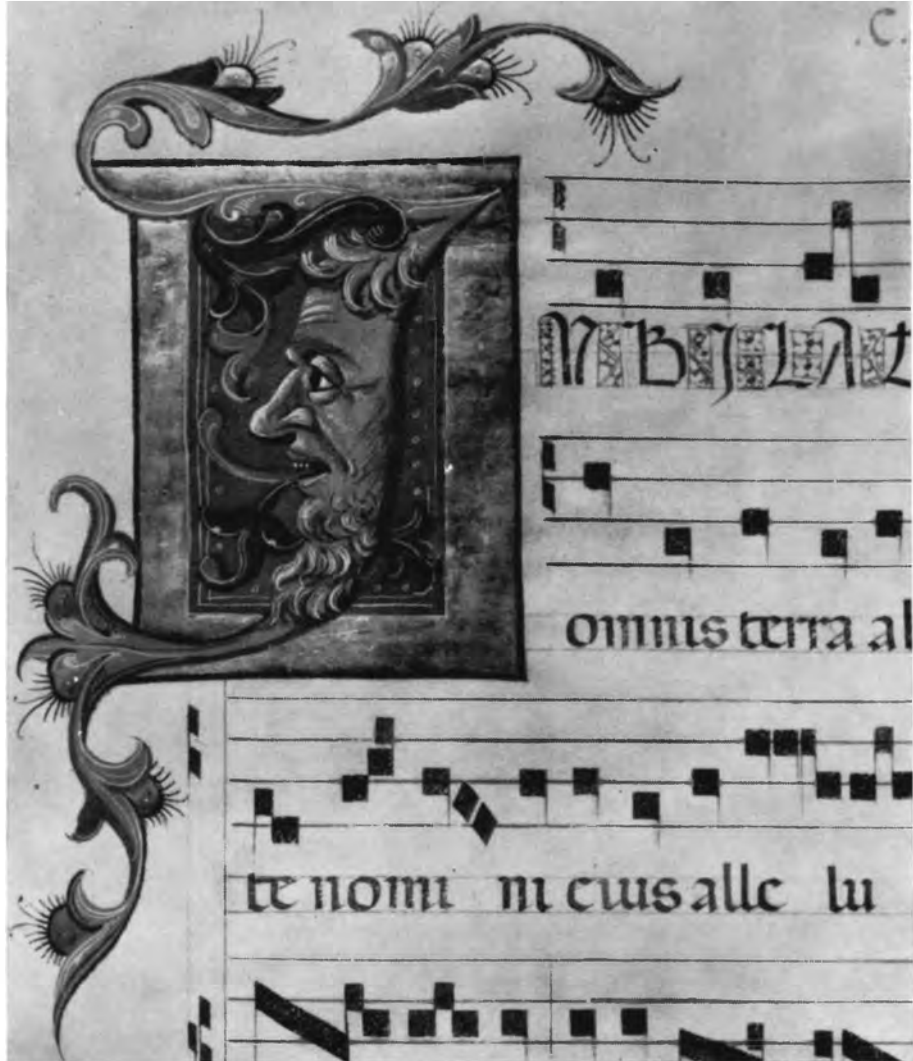 .C.
IVBILAt
omnis terra al
te nomi ni eius alle lu